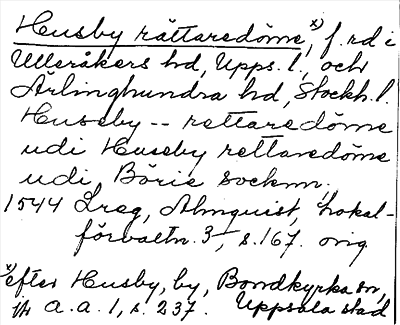 Husby rättaredöme,x) f.rd i
Ulleråkers hd, Upps. l., och
Ärlinghundra hd, Stockh. l.
Huseby -- rettaredöme
udi Huseby rettaredöme
udi Börie socknn.
1544 Dreg, Almquist, Lokal-
förvaltn. 3, s. 167. orig
x) efter Husby, by, Bondkyrka sn,
jfr a. a. 1, s. 237. Uppsala stad